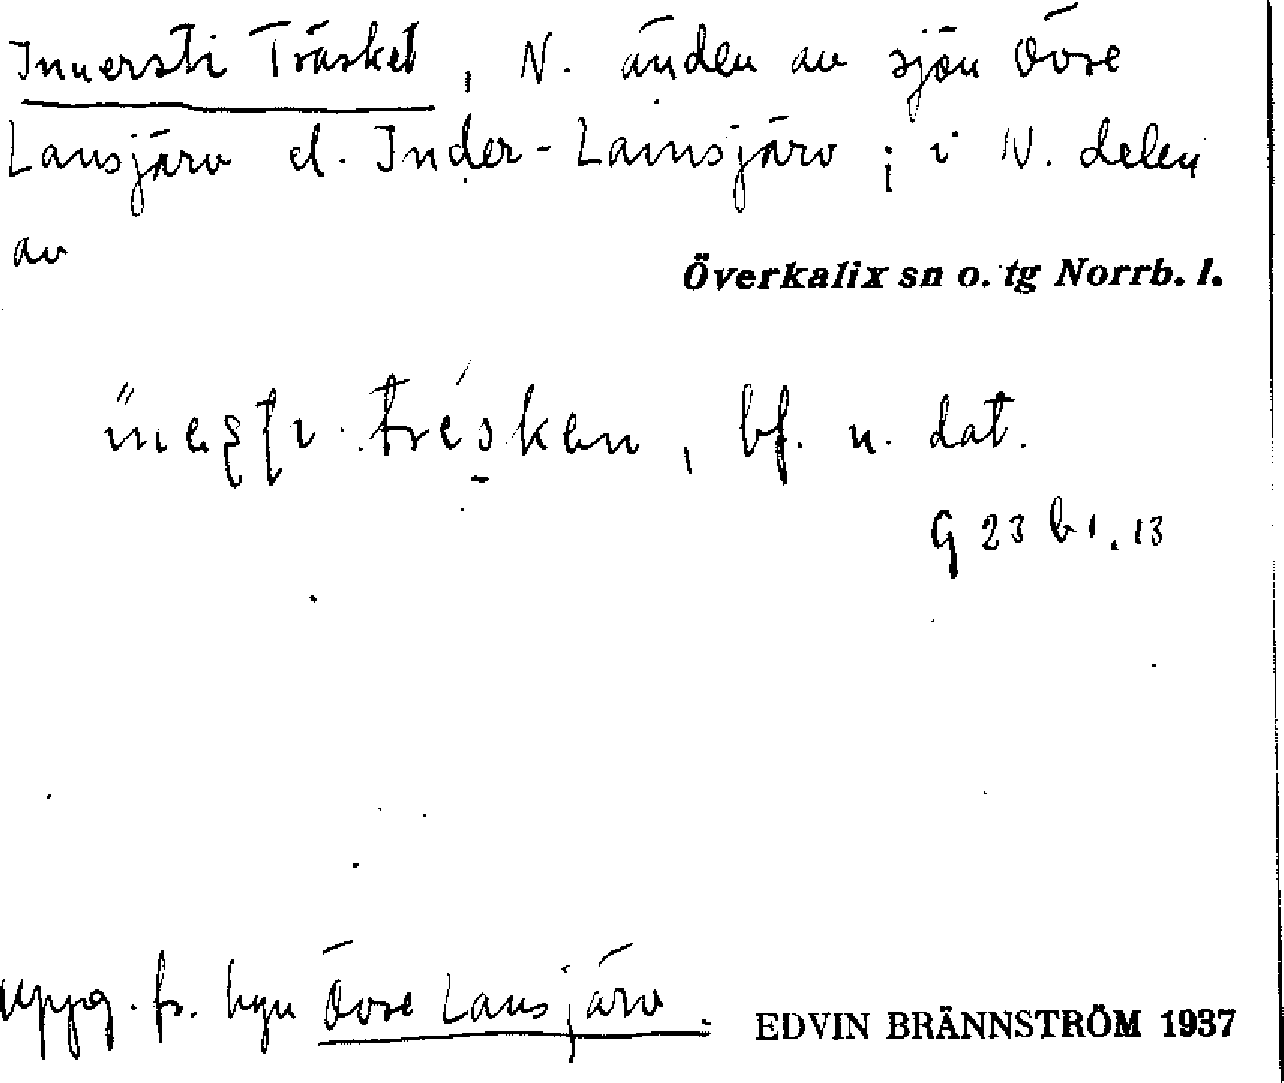 Innersti Träsket, N. änden av sjön Övre
Lansjärv el. Inder-Lainsjärv; i N. delen
av
Överkalix sn o. tg Norrb. l.
trésken, bf. n. dat.
G 23 b 1. 13
uppg. fr. byn Övre Lansjärv.
EDVIN BRÄNNSTRÖM 1937